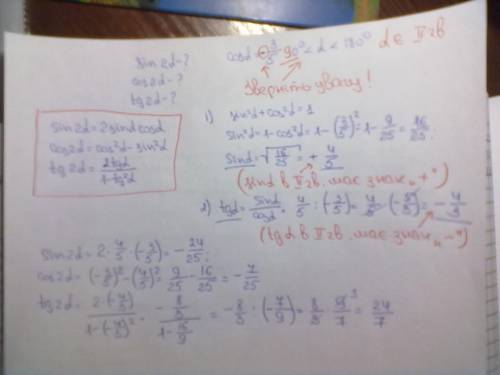 sin2α-?
cos2α-?
tg2α-?
cosα = -3/5 90° < α < 180° α ∈ II чв
Зверніть увагу!
sin2α = 2sinα cosα
cos2α = cos²α - sin²α
tg2α = 2tgα/1-tg²α
1) sin²α + cos²α = 1
sin²α = 1 - cos²α = 1 - (3/5)² = 1 - 9/25 = 16/25;
sinα = √16/25 = + 4/5
(sinα в II чв. має знак „+")
2) tgα = sinα/cosα = 4/5 : (-3/5) = 4/5 · (-5/3) = - 4/3
(tgα в II чв. має знак „-")
sin2α = 2 · 4/5 · (-3/5) = - 24/25;
cos2α = (-3/5)² - (4/5)² = 9/25 - 16/25 = - 7/25
tg2α = 2·(-4/3)/1-(-4/3)² = -8/3/1-16/9 = - 8/3 : (-7/9) = 8/3 · 9/7 ³ = 24/7